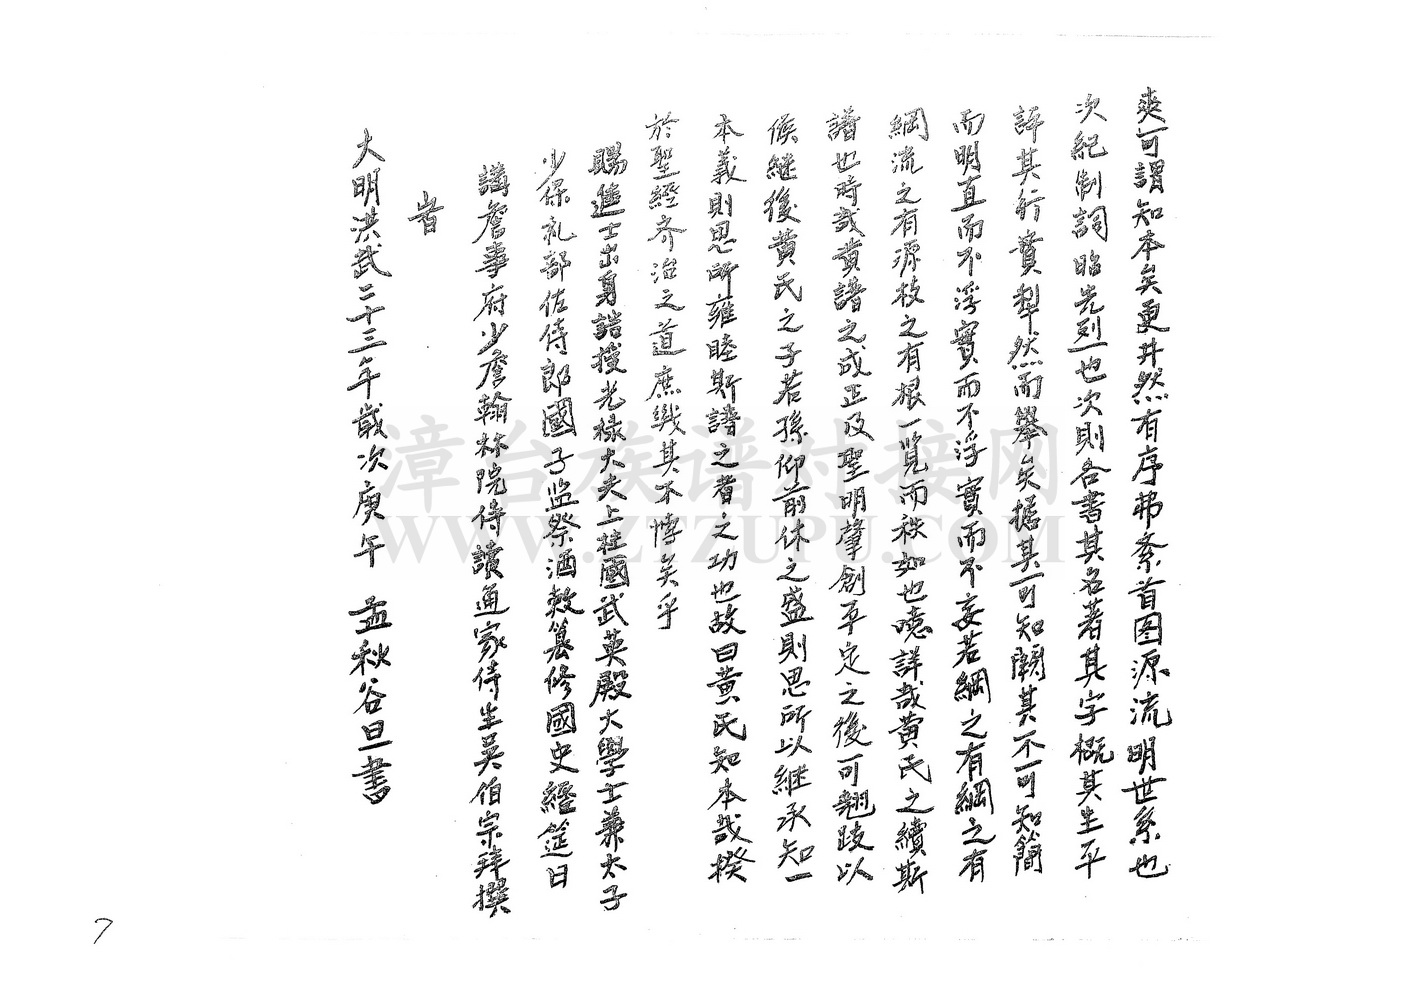 爽可謂知本矣更井然有序弗紊首图源流明世系也
次紀制詞昭先烈也次則各書其名著其字概其生平
評其行實犁然而舉矣据其可知闕其不可知簡
而明直而不浮實而不浮實而不妄若綱之有綱之有
綱流之有源枝之有根一覧而秩如也噫詳哉黄氏之續斯
譜也時哉黄譜之成正及聖明肇創平定之後可翹跂以
候继後黄氏之子若孫仰前休之盛則思所以継承知一
本義則思所雍睦斯譜之者之功也故曰黄氏知本哉揆
於聖經齐治之道庶幾其不悖矣乎
賜進士出身誥授光禄大夫上柱國武英殿大學士兼太子
少保礼部佐侍郎國子监祭酒敕篡修國史經筵日
講詹事府少詹翰林院侍讀通家侍生吴伯宗拜撰
旹
大明洪武二十三年歲次庚午 孟秋谷旦書
7
漳台族谱对接网
WWW.ZTZUPU.COM